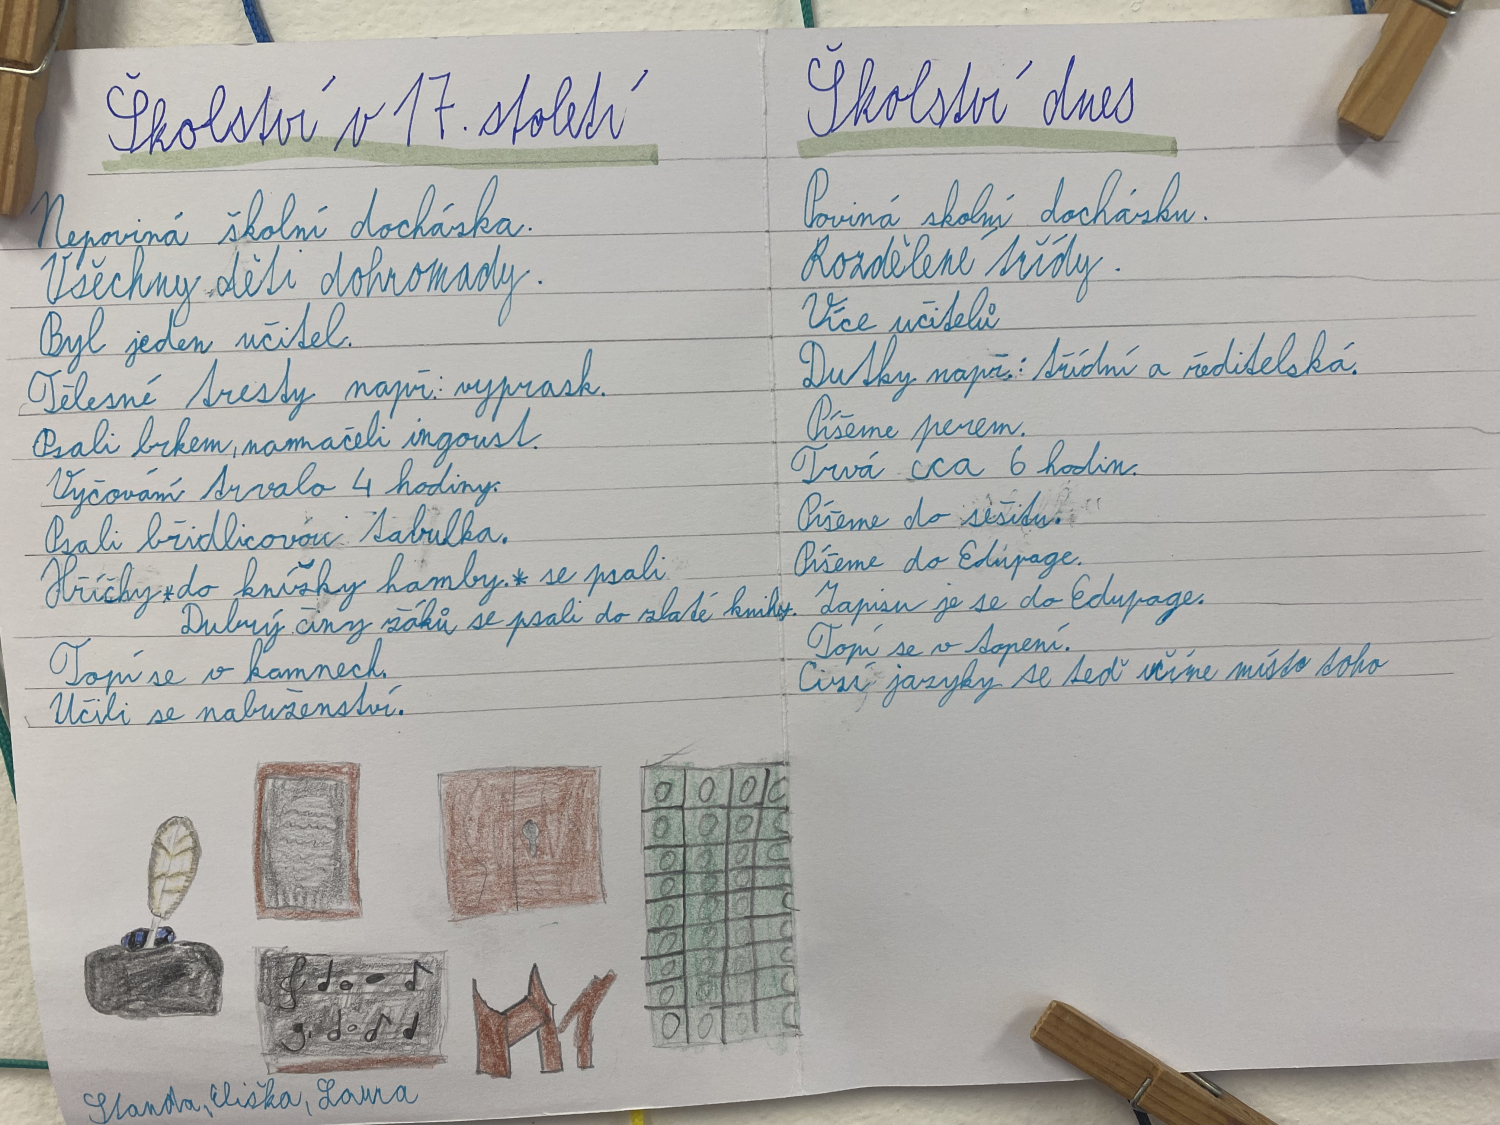 Školství v 17. století
Nepoviná školní docháska.
Všechny děti dohromady.
Byl jeden učitel.
Tělesné tresty např.: vyprask.
Psali brkem, namačeli ingoust.
Vyčování trvalo 4 hodiny.
Psali břidlicovou tabulka.
Hříčhy * do knížky hamby. * se psali
Dubrý činy žáků se psali do zlaté knihy.
Topí se v kamnech.
Učili se nabuženství.
Školství dnes
Poviná skolní docházku.
Rozdělené třídy.
Více učitelů
Dutky např.: třídní a ředitelská.
Píšeme perem.
Trvá cca 6 hodin.
Píšeme do sešitu.
Píšeme do Edupage.
Zapisu je se do Edupage.
Topí se v topení.
Cizí jazyky se teď učíme místo toho
Standa, Eliška, Laura